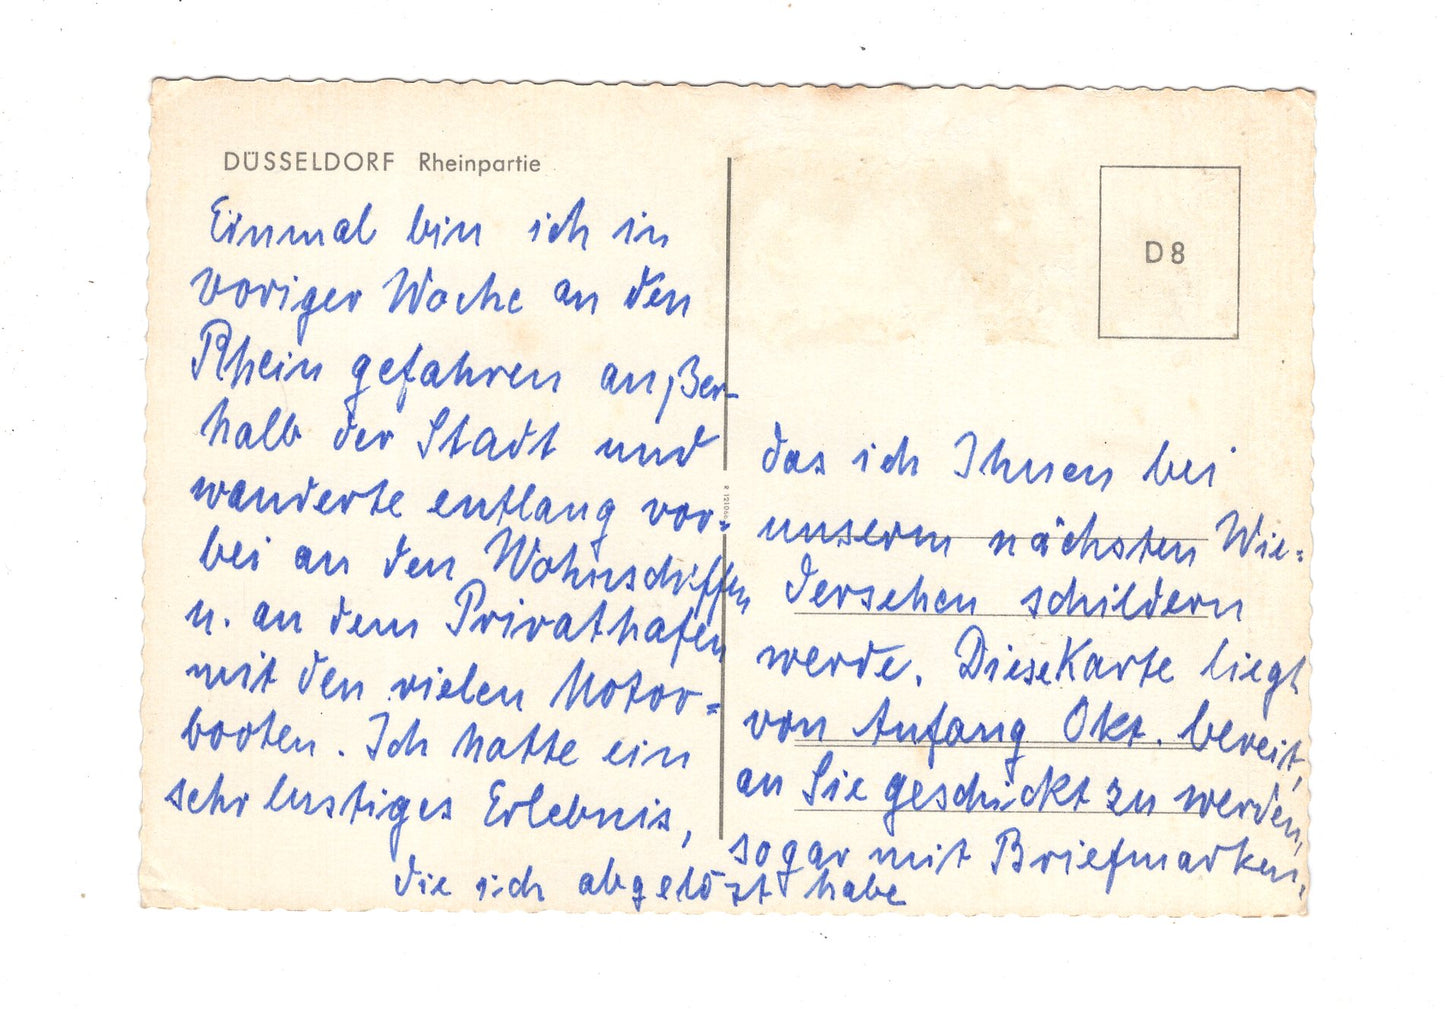 DÜSSELDORF Rheinpartie
D8
Einmal bin ich in
voriger Woche an den
Rhein gefahren außer-
halb der Stadt und
wanderte entlang vor=
bei an den Wohnschiffen
u. an dem Privathafen
mit den vielen Motor=
booten. Ich hatte ein
sehr lustiges Erlebnis,
das ich Ihnen bei
unserm nächsten Wie=
dersehen schildern
werde. Diese Karte liegt
von Anfang Okt. bereit,
an Sie geschickt zu werden,
sogar mit Briefmarken,
die ich abgelöst habe